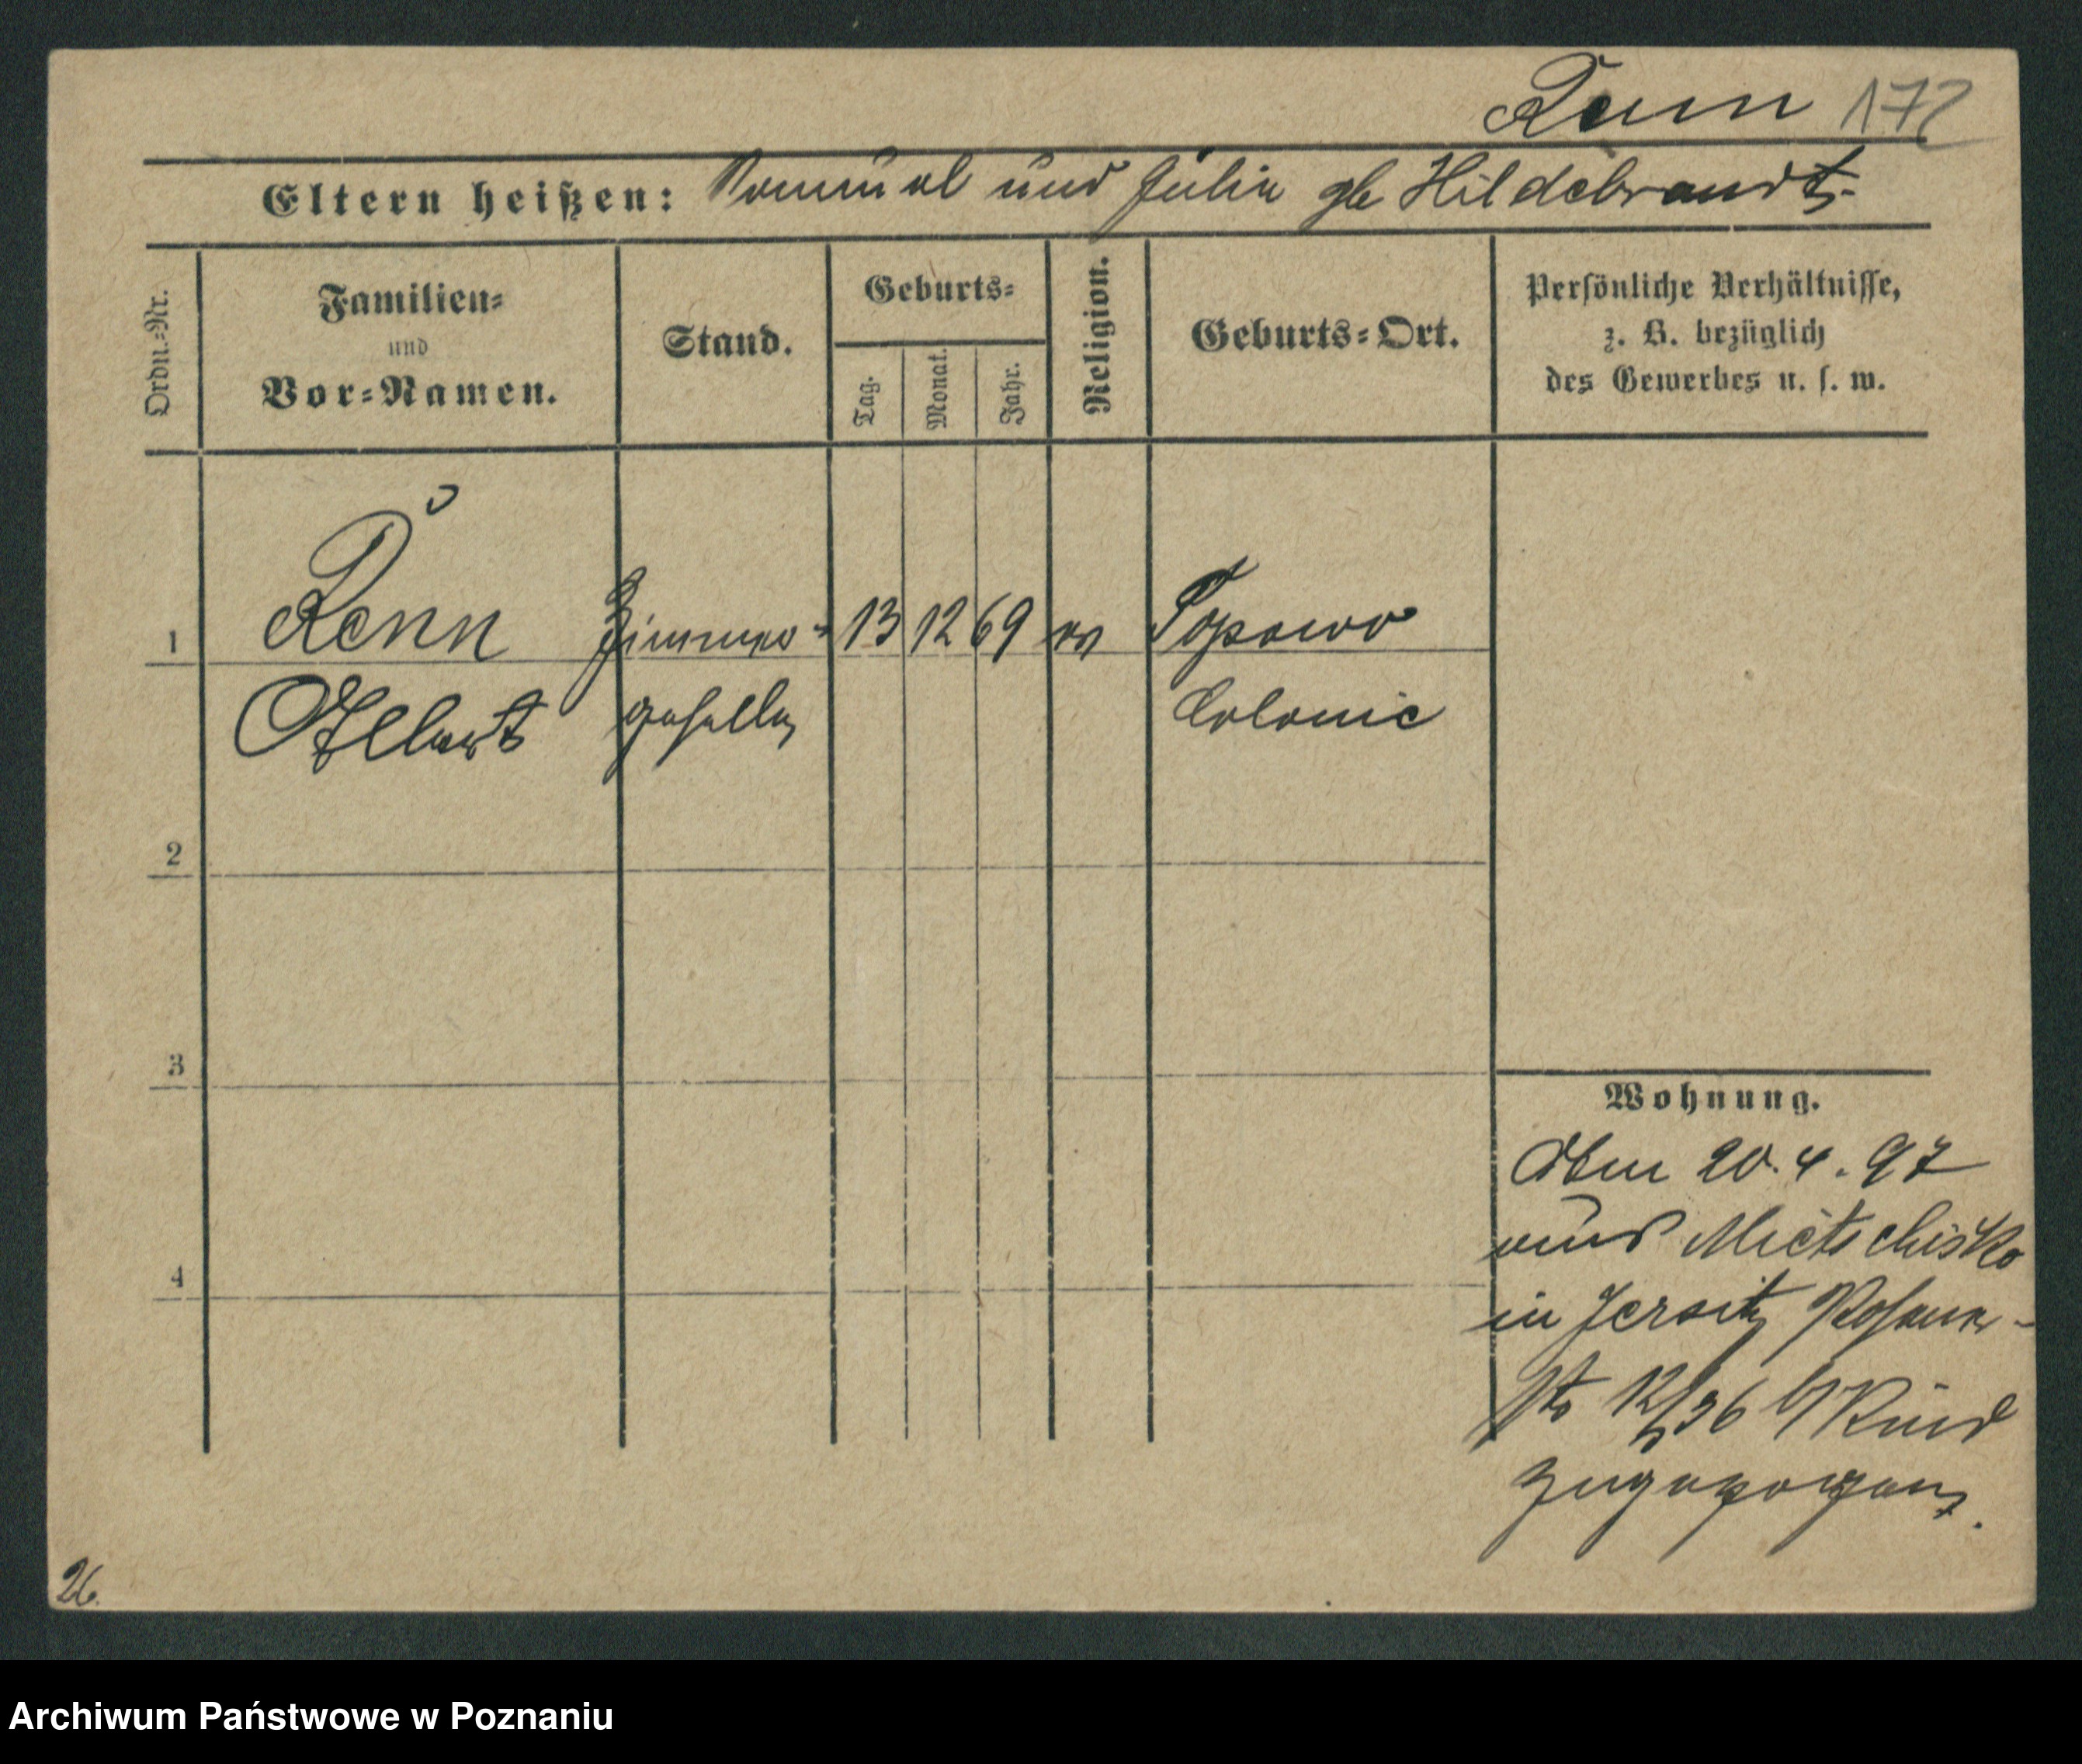 Renn 172
Eltern heißen: Romual und Julia gb Hildebrandt.
Ordn.-Nr.
Familien-
und
Vor-Namen.
Stand.
Geburts-
Tag.
Monat.
Jahr.
Religion.
Geburts-Ort.
Persönliche Verhältnisse,
z. B. bezüglich
des Gewerbes u. s. w.
1 Renn Zimmer- 13 12 69 ev Popowo
Albert geselle Colonie
2
3
4
Wohnung.
Am 20.4.97
aus Mietschisko
in Jersitz Posener-
Str 12/36 b/
zugezogen.
26.
Archiwum Państwowe w Poznaniu